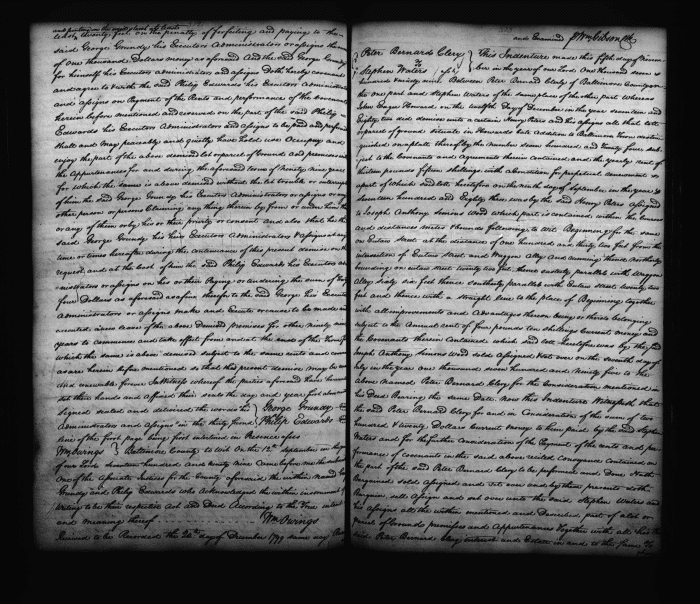 and pertaining on the
lots twenty feet on the penalty of forfeiting and paying to the
said George Grundy his Executors Administrators or assigns the sum
of one thousand Dollars money as aforesaid And the said George Grundy
for himself his Executors administrators and assigns doth hereby covenant
and agree to & with the said Philip Edwards his Executors Administrators
and assigns on Payment of the Rents and performance of the covenants
herein before mentioned and reserved on the part of the said Philip
Edwards his Executors Administrators and assigns to be paid and performed
shall and may peaceably and quietly have hold use Occupy and
enjoy the part of the above demised lot or parcel of Ground and premises
the Appurtenances for and during the aforesaid Term of Ninety nine years
for which the same is above demised without the let trouble or interruption
of him the said George Grundy his Executors Administrators or assigns or any
other person or persons Claiming any thing therein by from or under him them
or any of them or by his or their priority or consent and also that he the
said George Grundy his heirs Executors Administrators & assigns at any
time or times hereafter during the continuance of this present demise on the
request and at the cost of him the said Philip Edwards his Executors
Administrators or assigns on his or their Paying or tendering the sum of
four Dollars as aforesaid as a fine therefor to the said George his Executors
Administrators or assigns make and Execute or cause to be made and
executed a new lease of the above Demised premises for other ninety nine
years to commence and take effect from and at the end of the Term
which the same is above demised subject to the same rents and covenants
as are herein before mentioned so that this present demise may be
renewable forever In Witness whereof the parties aforesaid have hereunto
set their hands and affixed their seals the day and year first above
Signed sealed and delivered the words he } George Grundy
Administrators and Assigns in the thirty fourd } Philip Edwards
line of the first page being first interlined in Presence of us
Wm Owings } Baltimore County to Wit On the 12th September in the year
of our Lord seventeen hundred and ninety nine Came before me the subscriber
One of the Associate Justices for the County aforesaid the within named George
Grundy and Philip Edwards who Acknowledged the within instrument of
Writing to be their respective Act and Deed According to the True intent
and meaning thereof Wm Owings
Received to be Recorded the 24th day of December 1799 same day
and Examined Wm Gibson Clk
Peter Bernard Clery } This Indenture made this fifth day of
To
Stephen Waters } in the year of our Lord One thousand seven
hundred ninety nine Between Peter Bernard Clery of Baltimore County of
the one part and Stephen Waters of the same place of the other part whereas
John Eager Howard on the twelfth Day of December in the year seventeen and
Eighty two did demise unto a certain Henry Peters and his assigns all that lot
or parcel of ground situate in Howards late addition to Baltimore Town
guished on a platt thereof by the number seven hundred and ninety four sub
ject to the Covenants and agreements therein contained and the yearly rent of
thirteen pounds fifteen shillings with a Condition for perpetual renewment
apart of Which said lott heretofore on the ninth day of September in the year
seventeen hundred and Eighty three was by the said Henry Peters assigned
to Joseph Anthony Simons Wood which part is contained within the courses
and distances metes & bounds following to Wit Beginning for the same
on Eutaw Street at the distance of one hundred and thirty two feet from the
intersection of Eutaw Street and Waggon Alley and running thence northerly
bounding on Eutaw street twenty two feet thence easterly parallel with Waggon
Alley sixty six feet thence southerly parallel with Eutaw street twenty two
feet and thence with a straight line to the place of Beginning together
with all improvements and Advantages thereon being or thereto belonging
subject to the Annual Cent of four pounds ten shillings Current money and
the Covenants therein Contained which said lott heretofore was by the said
Joseph Anthony Simons Wood sold Assigned & set over on the seventh day of
July in the year one thousand seven hundred and Ninety five to the
above Named Peter Bernard Clery for the Consideration mentioned in
his Deed Bearing the same date. Now this Indenture Witnesseth that
the said Peter Bernard Clery for and in Consideration of the sum of two
hundred & twenty Dollars Current money to him paid by the said Stephen
Waters and for the further Consideration of the Payment of the rents and per
formance of covenants in the said above recited Conveyance Contained on
the part of the said Peter Bernard Clery to be performed and Done Hath
Bargained sold Assigned and set over and by these presents doth
Bargain sell Assign and set over unto the said Stephen Waters and
his Assigns all the within mentioned and Described part of a lot or
parcel of Ground premises and Appurtenances Together with all his the
said Peter Bernard Clery interest and Estate in and to the same To